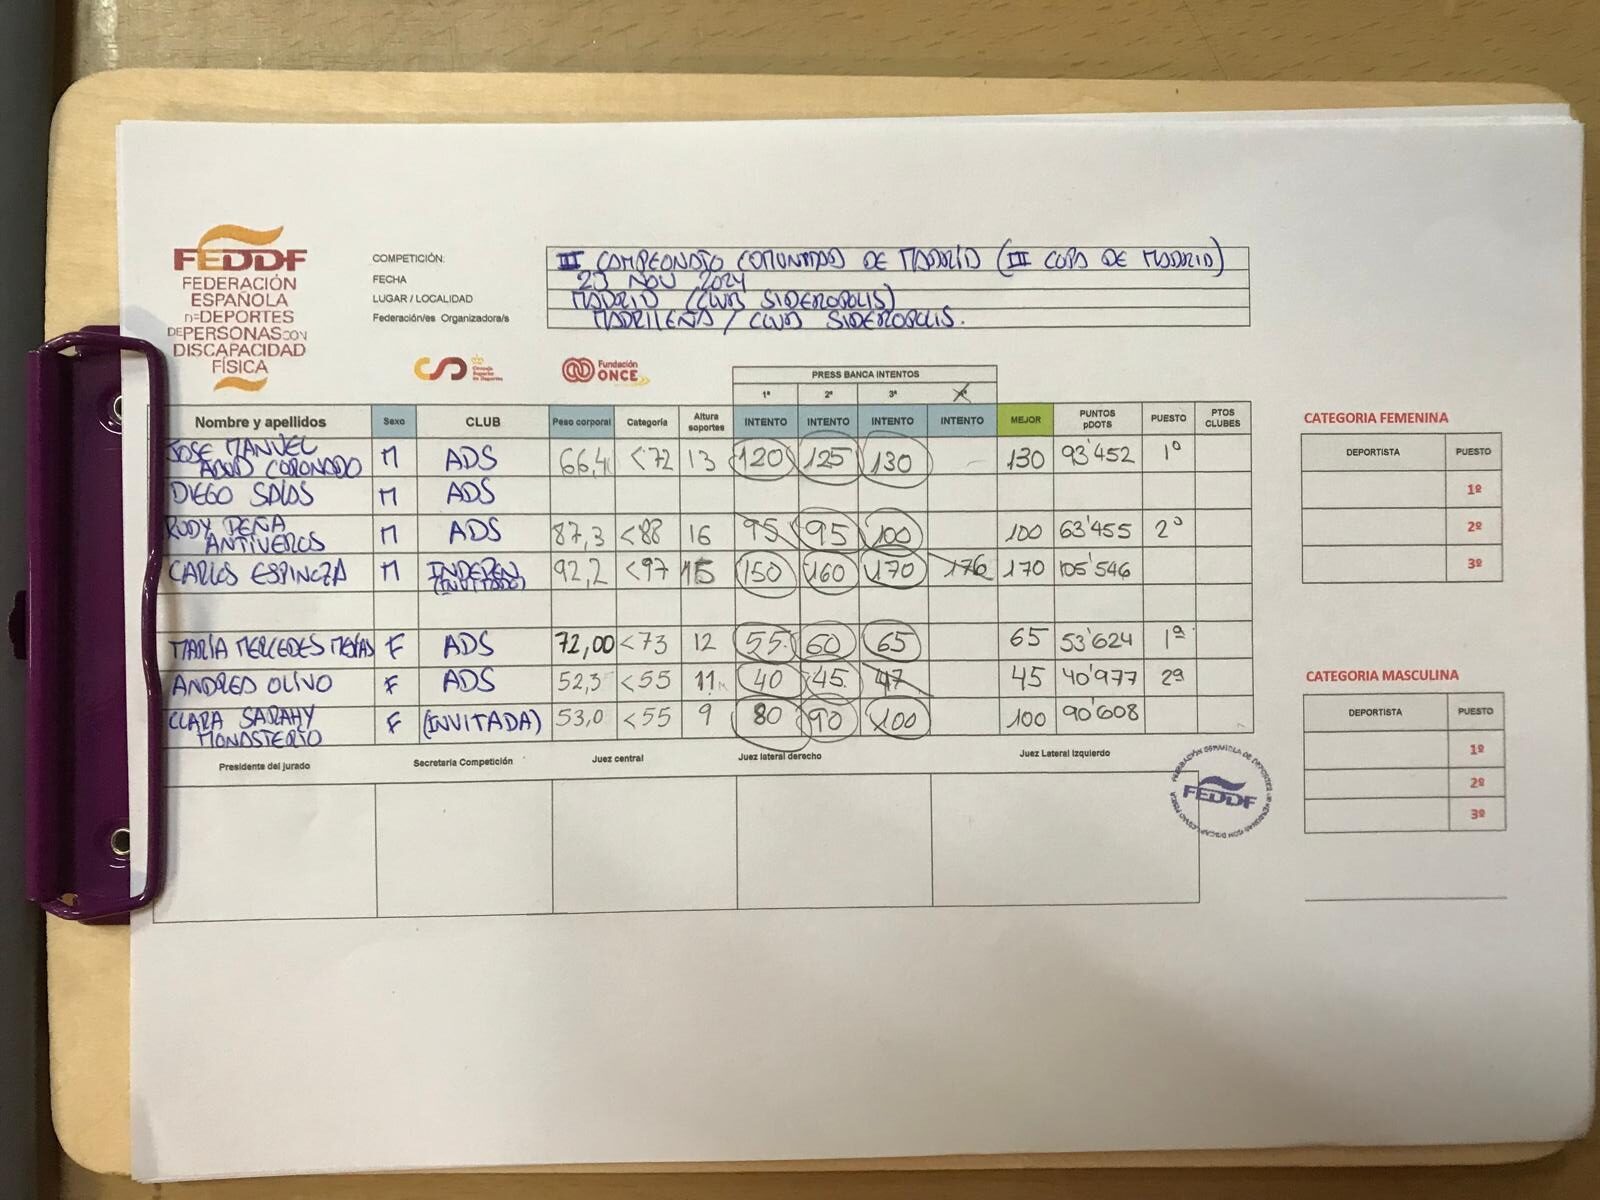 FEDDF
FEDERACIÓN
ESPAÑOLA
DE DEPORTES
DE PERSONAS CON
DISCAPACIDAD
FÍSICA
COMPETICIÓN: III CAMPEONATO COMUNIDAD DE MADRID (III COPA DE MADRID)
FECHA 23 NOV 2024
LUGAR / LOCALIDAD MADRID (CLUB SIDEROPOLIS)
Federación/es Organizadora/s MADRILEÑA / CLUB SIDEROPOLIS.
CSD Consejo Superior de Deportes
Fundación ONCE
PRESS BANCA INTENTOS
1ª 2ª 3ª
Nombre y apellidos Sexo CLUB Peso corporal Categoría Altura soportes INTENTO INTENTO INTENTO INTENTO MEJOR PUNTOS pDOTS PUESTO PTOS CLUBES
JOSE MANUEL
ABAD CORONADO M ADS 66,4 <72 13 120 125 130 - 130 93'452 1º
DIEGO SALAS M ADS
RUDY PEÑA
ANTIVEROS M ADS 87,3 <88 16 95 95 100 100 63'455 2º
CARLOS ESPINOZA M INDEPEN (INVITADO) 92,2 <97 15 150 160 170 176 170 105'546
MARÍA MERCEDES MEJÍAS F ADS 72,00 <73 12 55 60 65 65 53'624 1ª
ANDREA OLIVO F ADS 52,3 <55 11 40 45 47 45 40'977 2ª
CLARA SARAHY
MONASTERIO F (INVITADA) 53,0 <55 9 80 90 100 100 90'608
Presidente del jurado Secretaria Competición Juez central Juez lateral derecho Juez Lateral Izquierdo
FEDDF
CATEGORIA FEMENINA
DEPORTISTA PUESTO
1º
2º
3º
CATEGORIA MASCULINA
DEPORTISTA PUESTO
1º
2º
3º